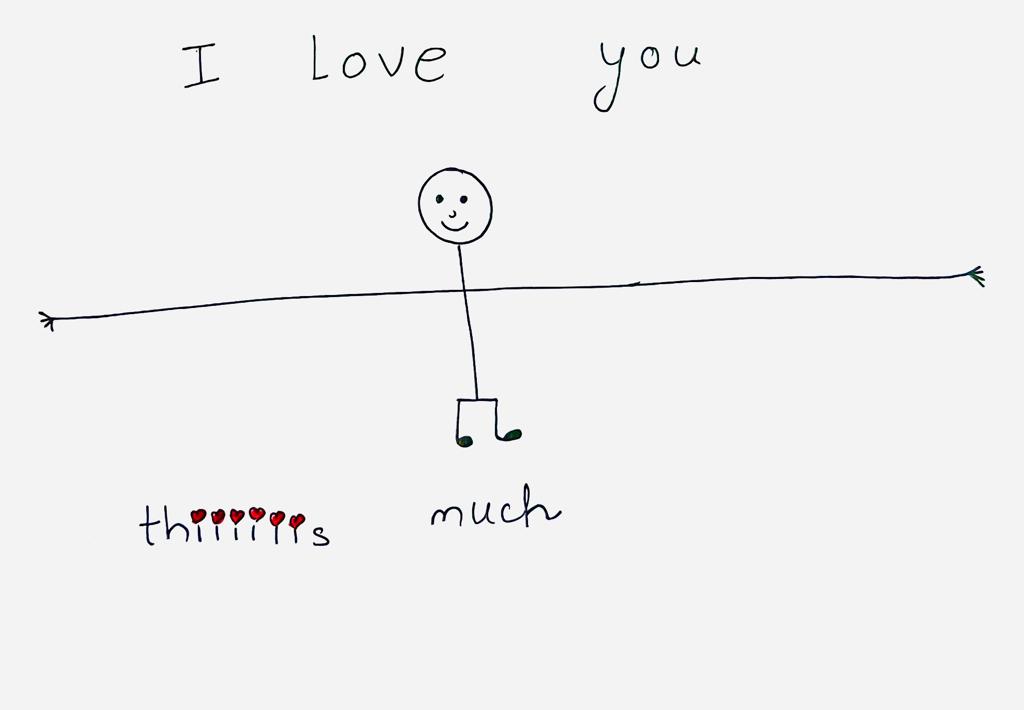 I Love you
thiiiiiis much